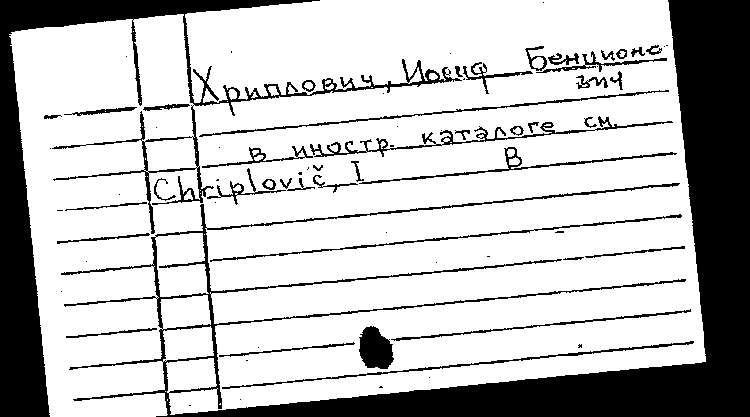 Хриплович, Иосиф Бенционо
вич
в иностр. каталоге см.
Chriplovič, I B